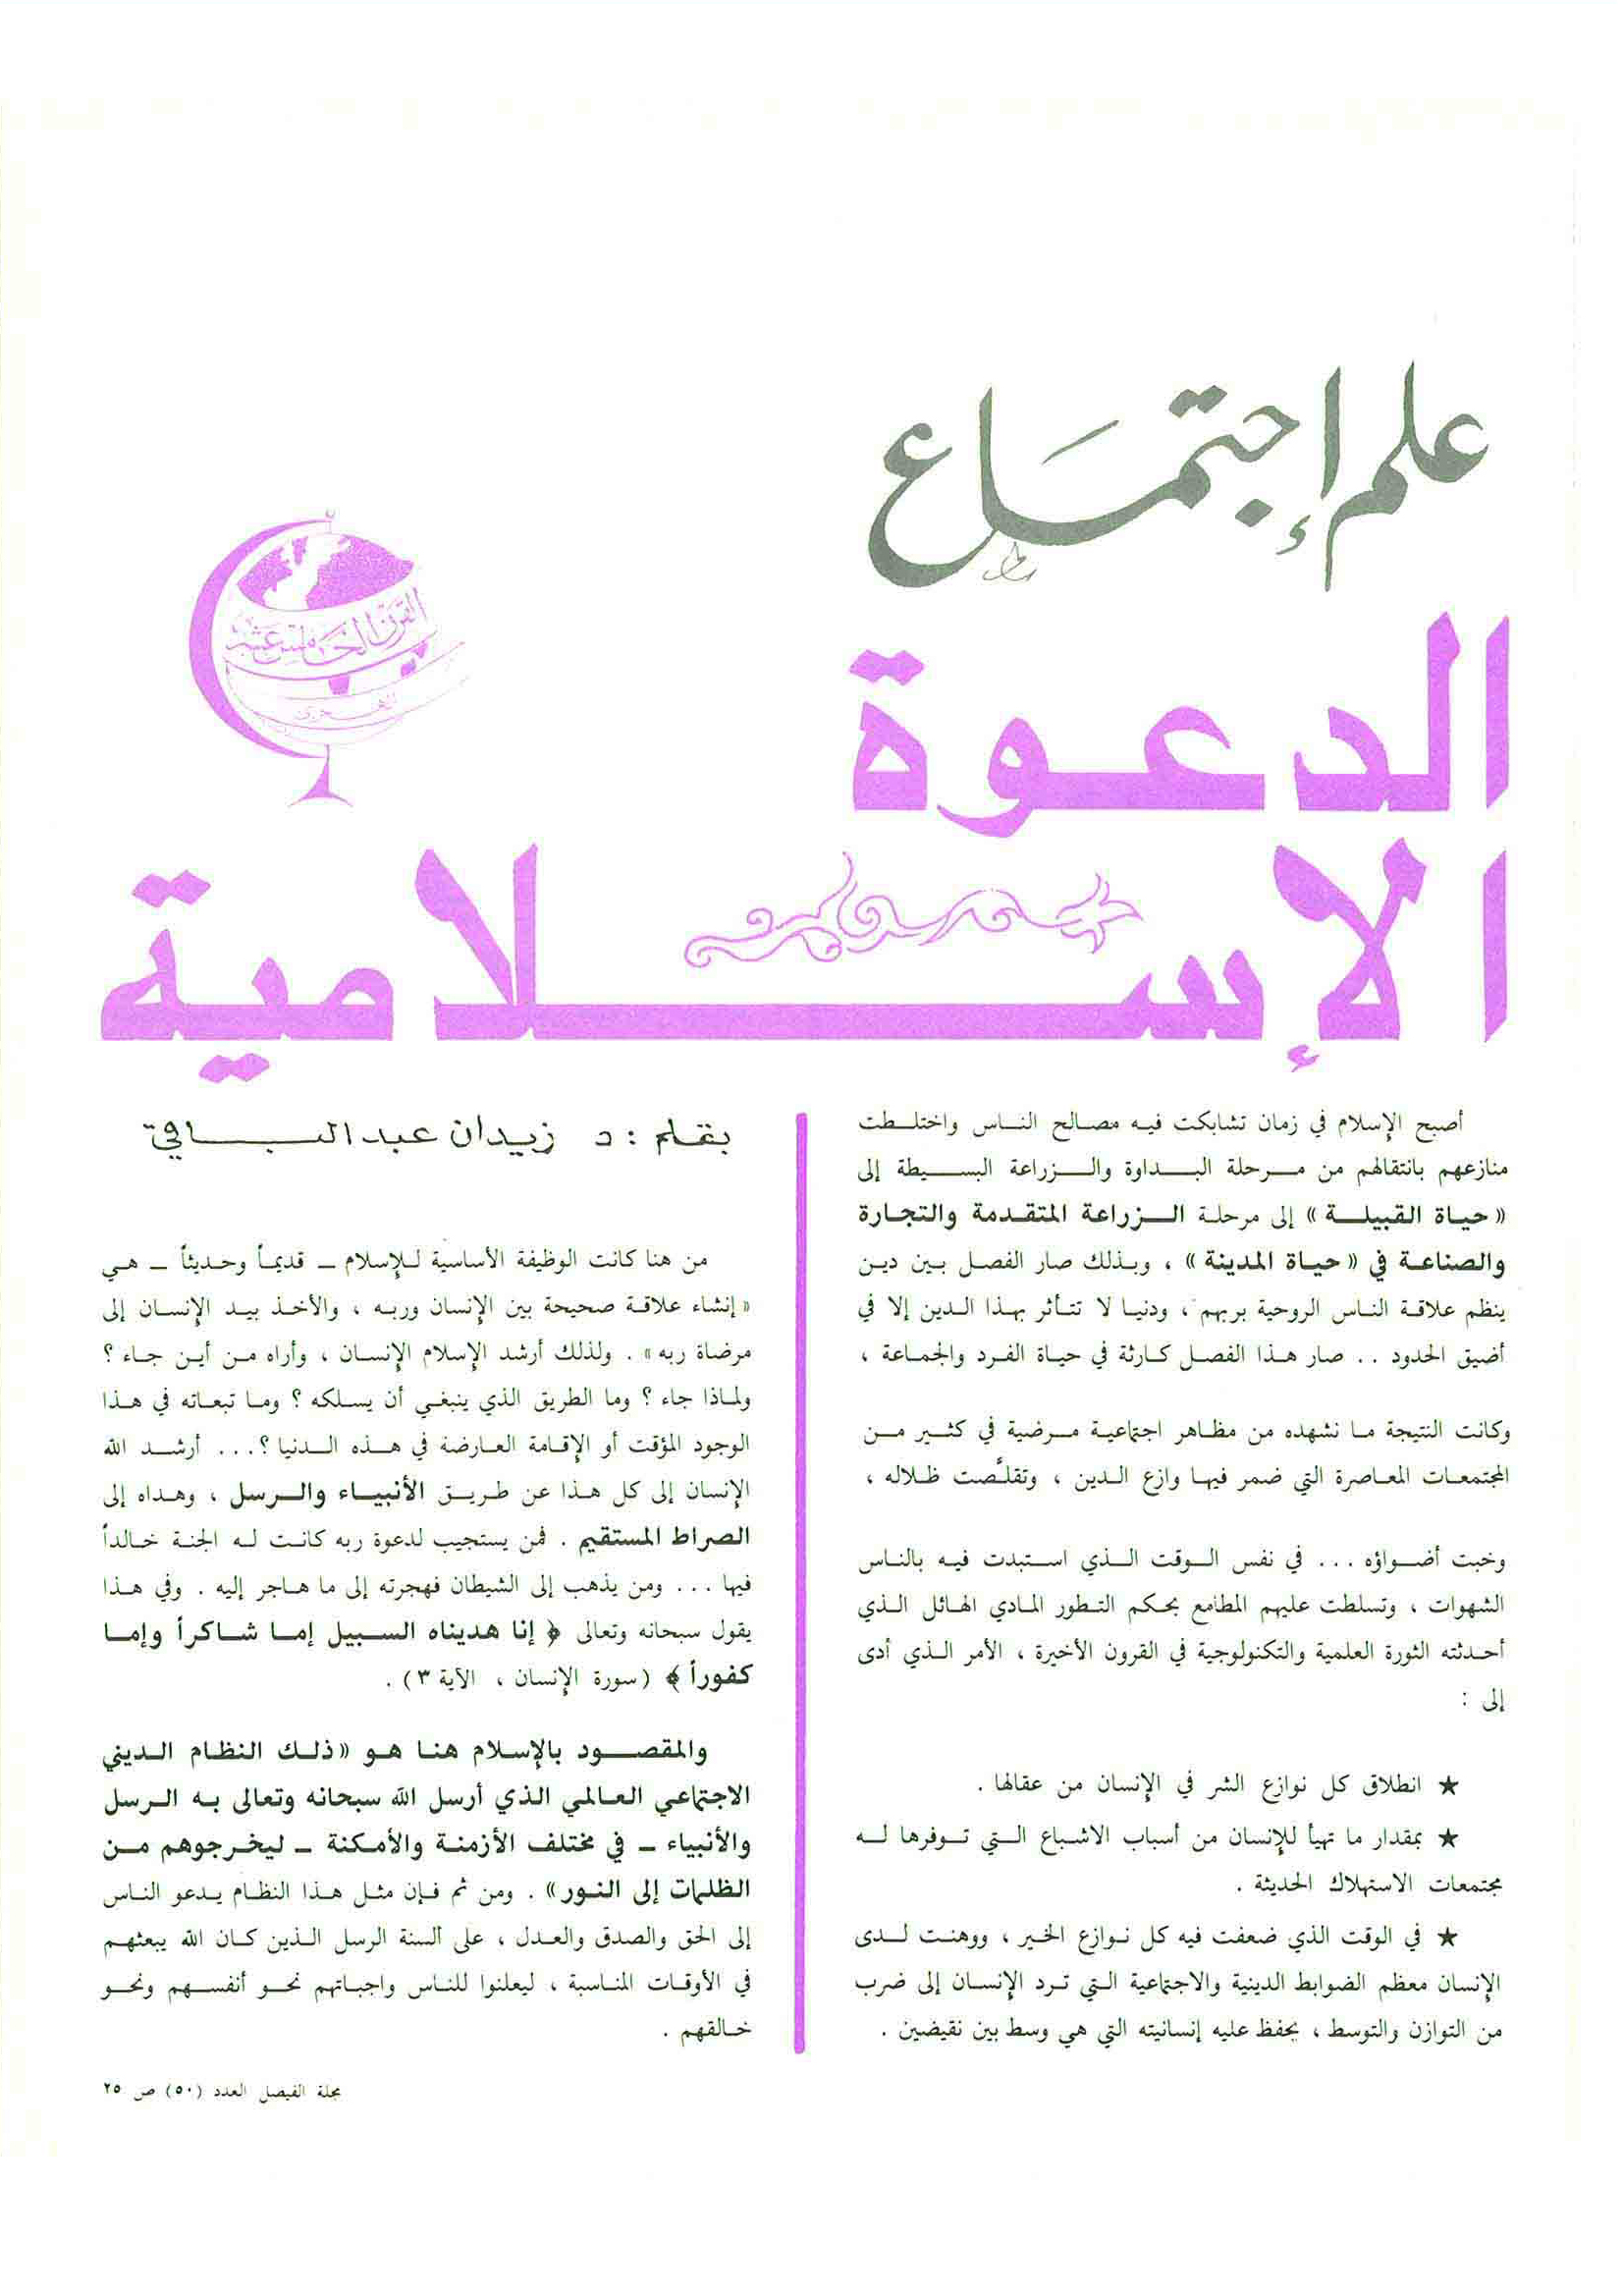 علم إجتماع
الدعوة
الإسلامية
القرن الخامس عشر
الهجري
بقلم : د زيدان عبد الباقي
أصبح الإسلام في زمان تشابكت فيه مصالح الناس واختلطت
منازعهم بانتقالهم من مرحلة البداوة والزراعة البسيطة إلى
« حياة القبيلة » إلى مرحلة الزراعة المتقدمة والتجارة
والصناعة في « حياة المدينة » ، وبذلك صار الفصل بين دين
ينظم علاقة الناس الروحية بربهم ، ودنيا لا تتأثر بهذا الدين إلا في
أضيق الحدود .. صار هذا الفصل كارثة في حياة الفرد والجماعة ،
وكانت النتيجة ما نشهده من مظاهر اجتماعية مرضية في كثير من
المجتمعات المعاصرة التي ضمر فيها وازع الدين ، وتقلَّصت ظلاله ،
وخبت أضواؤه ... في نفس الوقت الذي استبدت فيه بالناس
الشهوات ، وتسلطت عليهم المطامع بحكم التطور المادي الهائل الذي
أحدثته الثورة العلمية والتكنولوجية في القرون الأخيرة ، الأمر الذي أدى
إلى :
★ انطلاق كل نوازع الشر في الإنسان من عقالها .
★ بمقدار ما تهيأ للإنسان من أسباب الاشباع التي توفرها له
مجتمعات الاستهلاك الحديثة .
★ في الوقت الذي ضعفت فيه كل نوازع الخير ، ووهنت لدى
الإنسان معظم الضوابط الدينية والاجتماعية التي ترد الإنسان إلى ضرب
من التوازن والتوسط ، يحفظ عليه إنسانيته التي هي وسط بين نقيضين .
من هنا كانت الوظيفة الأساسية للإسلام – قديماً وحديثاً – هي
« إنشاء علاقة صحيحة بين الإنسان وربه ، والأخذ بيد الإنسان إلى
مرضاة ربه » . ولذلك أرشد الإسلام الإنسان ، وأراه من أين جاء ؟
ولماذا جاء ؟ وما الطريق الذي ينبغي أن يسلكه ؟ وما تبعاته في هذا
الوجود المؤقت أو الإقامة العارضة في هذه الدنيا ؟... أرشد الله
الإنسان إلى كل هذا عن طريق الأنبياء والرسل ، وهداه إلى
الصراط المستقيم . فمن يستجيب لدعوة ربه كانت له الجنة خالداً
فيها ... ومن يذهب إلى الشيطان فهجرته إلى ما هاجر إليه . وفي هذا
يقول سبحانه وتعالى ﴿ إنا هديناه السبيل إما شاكراً وإما
كفوراً ﴾ ( سورة الإنسان ، الآية ٣ ) .
والمقصود بالإسلام هنا هو « ذلك النظام الديني
الاجتماعي العالمي الذي أرسل الله سبحانه وتعالى به الرسل
والأنبياء – في مختلف الأزمنة والأمكنة – ليخرجوهم من
الظلمات إلى النور » . ومن ثم فإن مثل هذا النظام يدعو الناس
إلى الحق والصدق والعدل ، على ألسنة الرسل الذين كان الله يبعثهم
في الأوقات المناسبة ، ليعلنوا للناس واجباتهم نحو أنفسهم ونحو
خالقهم .
مجلة الفيصل العدد (٥٠) ص ٢٥